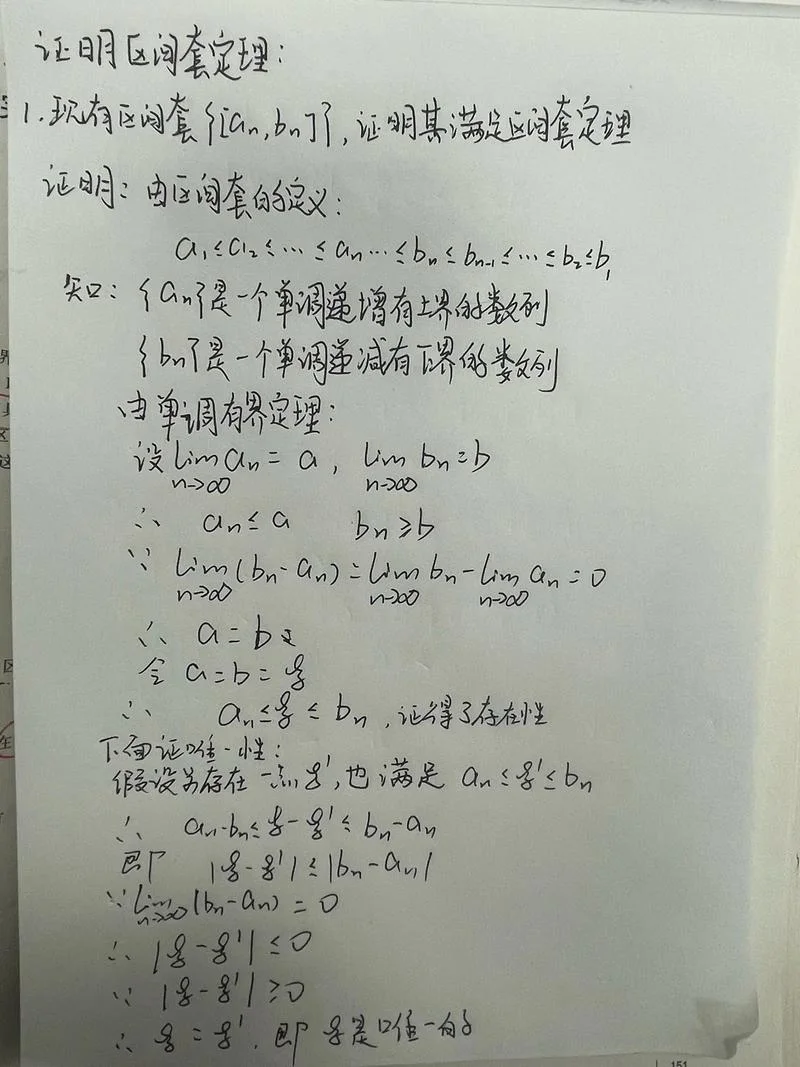 证明区间套定理:
1.现有区间套{[an,bn]},证明其满足区间套定理
证明: 由区间套的定义:
a1≤a2≤…≤an…≤bn≤bn-1≤…≤b2≤b1
知: {an}是一个单调递增有上界的数列
{bn}是一个单调递减有下界的数列
由单调有界定理:
设 lim n→∞ an = a, lim n→∞ bn = b
∴ an≤a bn≥b
∵ lim n→∞ (bn-an) = lim n→∞ bn - lim n→∞ an = 0
∴ a=b
令 a=b=ξ
∴ an≤ξ≤bn,证得了存在性
下面证唯一性:
假设另存在一点ξ',也满足 an≤ξ'≤bn
∴ an-bn≤ξ-ξ'≤bn-an
即 |ξ-ξ'|≤|bn-an|
∵ lim n→∞ (bn-an)=0
∴ |ξ-ξ'|≤0
∵ |ξ-ξ'|≥0
∴ ξ=ξ'. 即ξ是唯一的
151